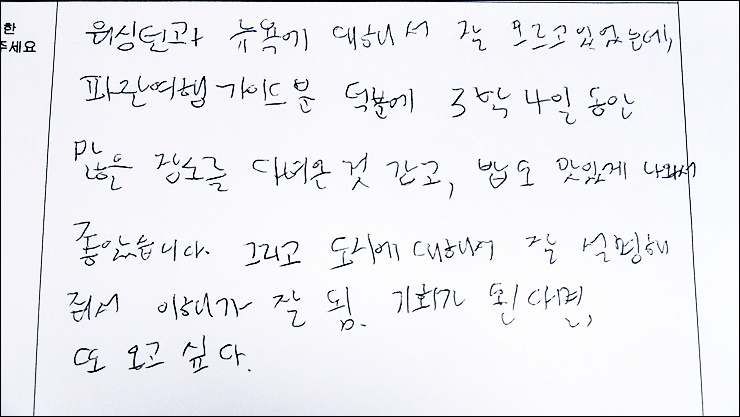 한
주세요
워싱턴과 뉴욕에 대해서 잘 모르고있었는데,
파란여행 가이드분 덕분에 3박 4일 동안
많은 장소를 다녀온 것 같고, 밥도 맛있게 나와서
좋았습니다. 그리고 도시에 대해서 잘 설명해
줘서 이해가 잘 됨. 기회가 된다면,
또 오고 싶다.